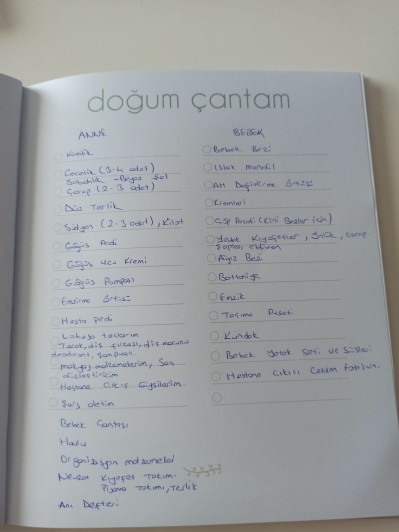 doğum çantam
ANNE
Kimlik
Gecelik (3-4 adet)
Sabahlık - Beyaz Şal
Çorap (2-3 adet)
Düz Terlik
Sütyen (2-3 adet), Kilot
Göğüs Pedi
Göğüs Ucu Kremi
Göğüs Pompası
Emzirme Örtüsü
Hasta pedi
Lohusa
Tarak, diş fırçası, diş macunu
deodorant, Şampuan
makyaj malzemelerim, Saç
düzleştiricim
Hastane Çıkış Giysilerim
Şarj aletim
Bebek Çantası
Havlu
Organizasyon malzemeleri
Kıyafet Takımı
Pijama Takımı, Terlik
Anı Defteri
BEBEK
Bebek Bezi
Islak Mendil
Alt Değiştirme Örtüsü
Kremleri
Çöp Poşeti (Kirli Bezler için)
Yedek Kıyafetler, Önlük, çorap
Şapka, eldiven
Ağız Bezi
Battaniye
Emzik
Taşıma Puseti
Kundak
Bebek Yatak Seti ve Süsleri
Hastane Çıkışı